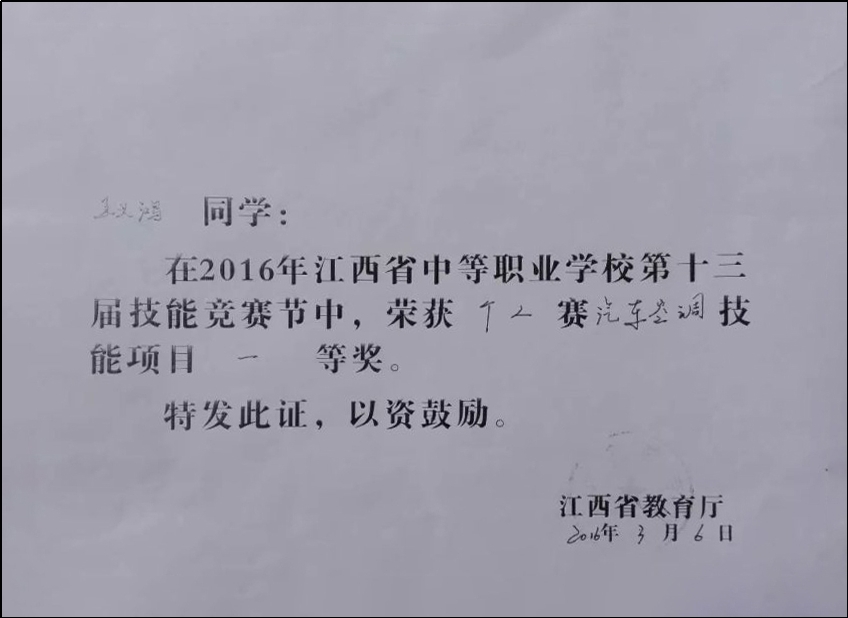 同学：
在2016年江西省中等职业学校第十三
届技能竞赛节中，荣获 个人 赛 汽车空调 技
能项目 一 等奖。
特发此证，以资鼓励。
江西省教育厅
2016年 3 月 6 日